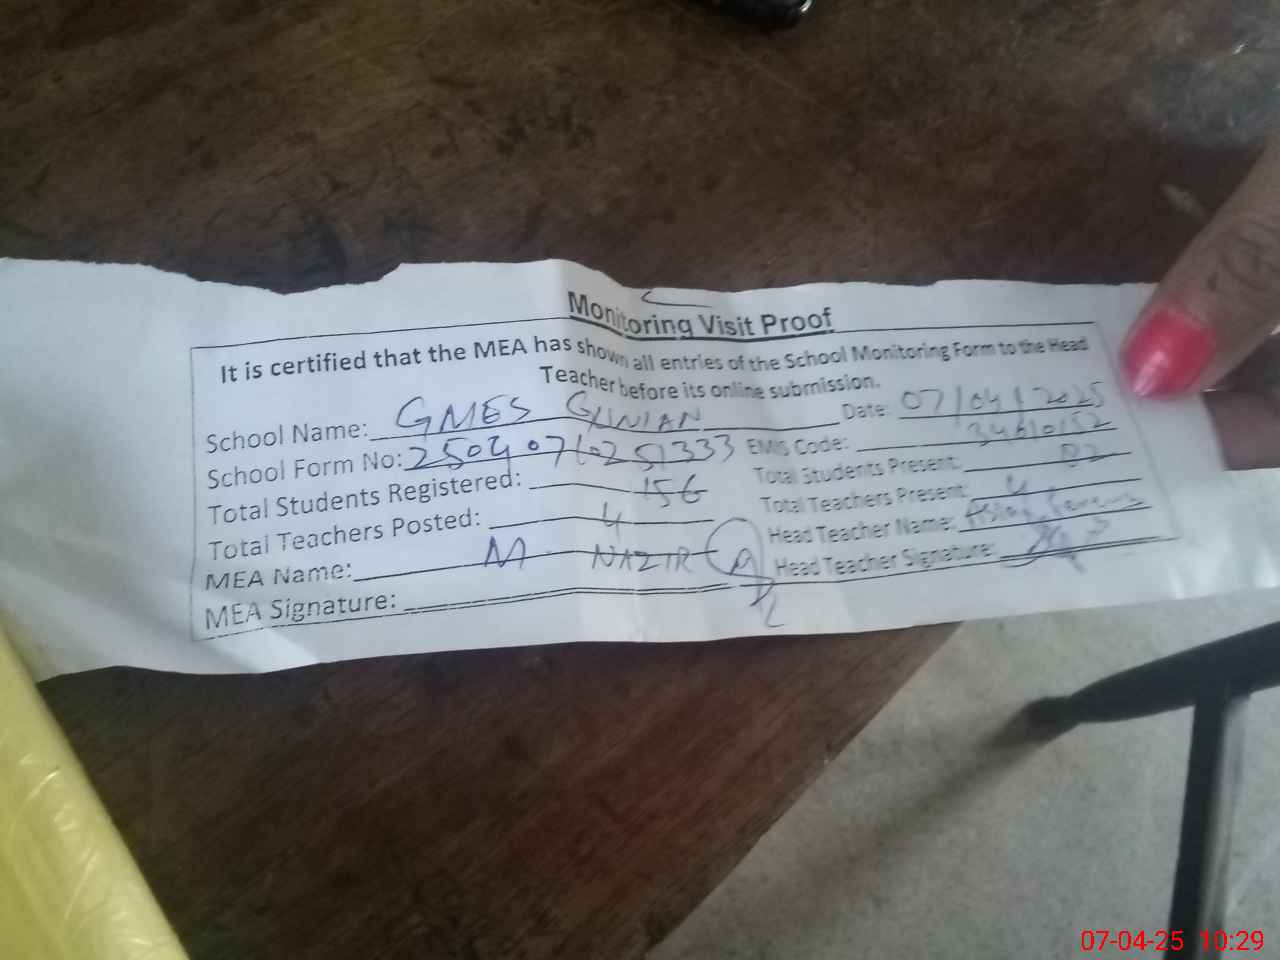 Monitoring Visit Proof
It is certified that the MEA has shown all entries of the School Monitoring Form to the Head
Teacher before its online submission.
School Name: GMES Date: 07/04/2025
School Form No: EMIS Code:
Total Students Registered: 156 Total Students Present:
Total Teachers Posted: 4 Total Teachers Present: 4
MEA Name: M. NAZIR Head Teacher Name:
MEA Signature: Head Teacher Signature:
07-04-25 10:29